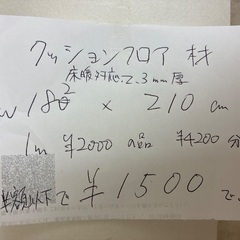 クッションフロア 材
床暖対応 2.3mm厚
W 182 × 210 cm
1m ¥2000 の品 ¥4200 分
半額以下で ¥1500 で